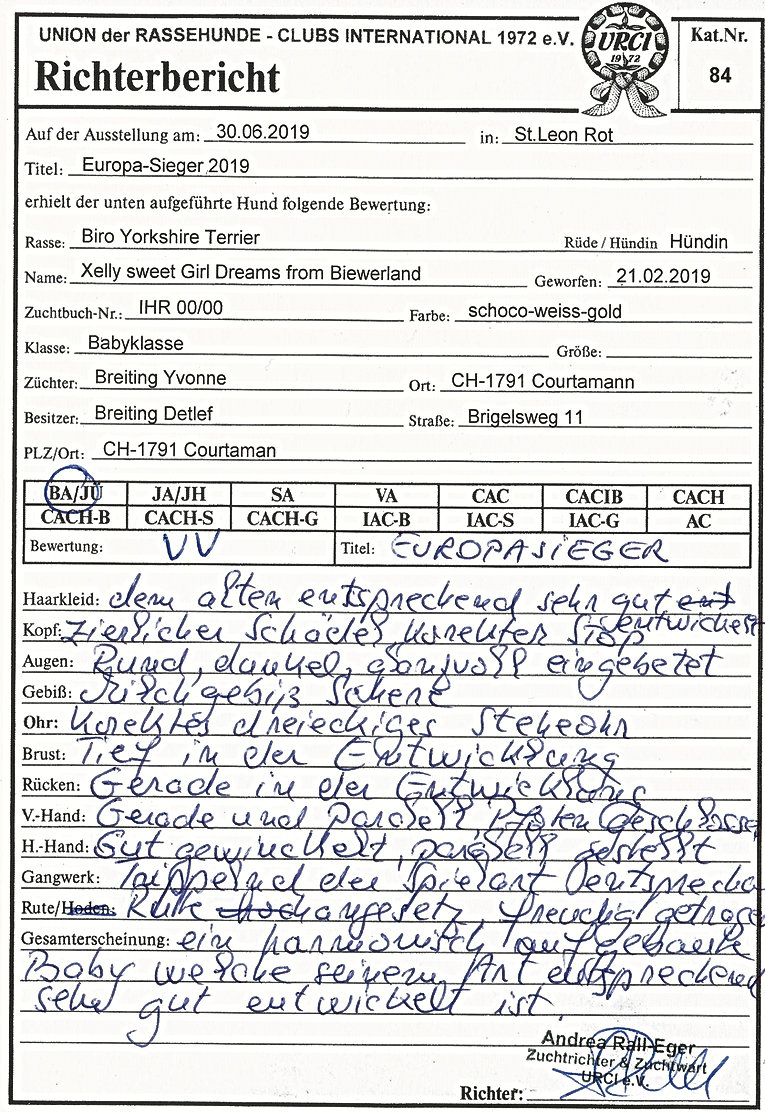 UNION der RASSEHUNDE - CLUBS INTERNATIONAL 1972 e.V.
URCI
1972
Kat.Nr.
84
Richterbericht
Auf der Ausstellung am: 30.06.2019 in: St.Leon Rot
Titel: Europa-Sieger 2019
erhielt der unten aufgeführte Hund folgende Bewertung:
Rasse: Biro Yorkshire Terrier Rüde / Hündin Hündin
Name: Xelly sweet Girl Dreams from Biewerland Geworfen: 21.02.2019
Zuchtbuch-Nr.: IHR 00/00 Farbe: schoco-weiss-gold
Klasse: Babyklasse Größe:
Züchter: Breiting Yvonne Ort: CH-1791 Courtamann
Besitzer: Breiting Detlef Straße: Brigelsweg 11
PLZ/Ort: CH-1791 Courtaman
BA/JÜ JA/JH SA VA CAC CACIB CACH
CACH-B CACH-S CACH-G IAC-B IAC-S IAC-G AC
Bewertung: VV Titel: EUROPASIEGER
Haarkleid: dem alten entsprechend sehr gut ent
entwickelt
Kopf: Zierlicher Schädel korekter Stop
Augen: Rund, dunkel, glanzvoll eingebetet
Gebiß: Milchgebiß Schere
Ohr: Korektes dreieckiges Stehohr
Brust: Tief in der Entwicklung
Rücken: Gerade in der Entwicklung
V.-Hand: Gerade und Paralell Pfoten Geschlossen
H.-Hand: Gut gewinckelt, paralell gestellt
Gangwerk: Trippelnd der Spielart entsprechend
Rute/Hoden: Rute hochangesetz, freudig getragen
Gesamterscheinung: ein harmonisch aufgebaute
Baby welche seinem Art entsprechend
sehr gut entwickelt ist.
Andrea Rall-Eger
Zuchtrichter & Zuchtwart
URCI e.V.
Richter: